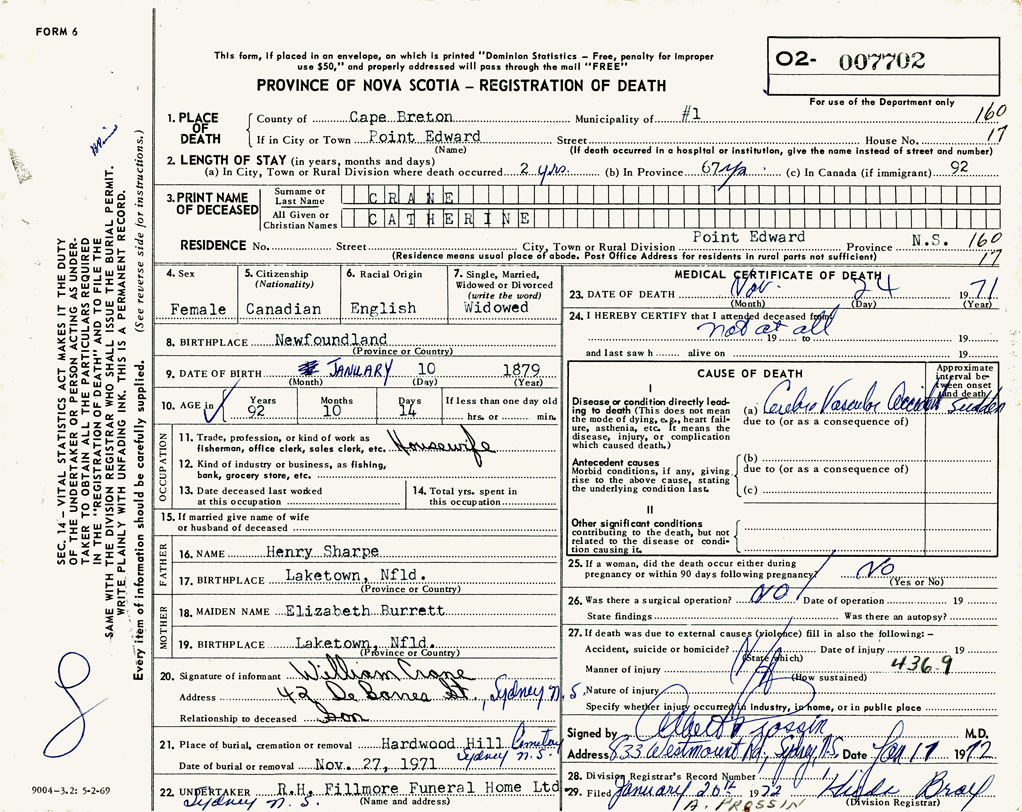 FORM 6
This form, if placed in an envelope, on which is printed "Dominion Statistics – Free, penalty for improper
use $50," and properly addressed will pass through the mail "FREE"
O2- 007702
For use of the Department only
PROVINCE OF NOVA SCOTIA – REGISTRATION OF DEATH
1. PLACE OF DEATH
County of Cape Breton Municipality of #1 160
If in City or Town Point Edward Street House No. 17
(Name) (If death occurred in a hospital or institution, give the name instead of street and number)
2. LENGTH OF STAY (in years, months and days)
(a) In City, Town or Rural Division where death occurred 2 yrs. (b) In Province 67 yrs. (c) In Canada (if immigrant) 92
3. PRINT NAME OF DECEASED
Surname or Last Name CRANE
All Given or Christian Names CATHERINE
RESIDENCE No. Street City, Town or Rural Division Point Edward Province N.S. 160
(Residence means usual place of abode. Post Office Address for residents in rural parts not sufficient) 17
4. Sex
Female
5. Citizenship
(Nationality)
Canadian
6. Racial Origin
English
7. Single, Married,
Widowed or Divorced
(write the word)
Widowed
8. BIRTHPLACE Newfoundland
(Province or Country)
9. DATE OF BIRTH JANUARY 10 1879
(Month) (Day) (Year)
10. AGE in Years Months Days If less than one day old
92 10 14 hrs. or min.
OCCUPATION
11. Trade, profession, or kind of work as
fisherman, office clerk, sales clerk, etc. Housewife
12. Kind of industry or business, as fishing,
bank, grocery store, etc.
13. Date deceased last worked
at this occupation
14. Total yrs. spent in
this occupation
15. If married give name of wife
or husband of deceased
FATHER
16. NAME Henry Sharpe
17. BIRTHPLACE Laketown, Nfld.
(Province or Country)
MOTHER
18. MAIDEN NAME Elizabeth Burrett
19. BIRTHPLACE Laketown, Nfld.
(Province or Country)
20. Signature of informant William Crane
Address 42 St., Sydney N.S.
Relationship to deceased Son
21. Place of burial, cremation or removal Hardwood Hill Cemetery
Sydney N.S.
Date of burial or removal Nov. 27, 1971
22. UNDERTAKER R.H. Fillmore Funeral Home Ltd
Sydney N.S. (Name and address)
MEDICAL CERTIFICATE OF DEATH
23. DATE OF DEATH Nov. 24 1971
(Month) (Day) (Year)
24. I HEREBY CERTIFY that I attended deceased from
not at all
19 to 19
and last saw h alive on 19
CAUSE OF DEATH
Approximate interval between onset and death
I
Disease or condition directly leading to death (This does not mean
the mode of dying, e.g., heart failure, asthenia, etc. It means the
disease, injury, or complication
which caused death.)
(a) Cerebro Vascular Accident sudden
due to (or as a consequence of)
Antecedent causes
Morbid conditions, if any, giving
rise to the above cause, stating
the underlying condition last.
(b)
due to (or as a consequence of)
(c)
II
Other significant conditions
contributing to the death, but not
related to the disease or condition causing it.
25. If a woman, did the death occur either during
pregnancy or within 90 days following pregnancy? NO
(Yes or No)
26. Was there a surgical operation? NO Date of operation 19
State findings Was there an autopsy?
27. If death was due to external causes (violence) fill in also the following: –
Accident, suicide or homicide? Date of injury 19
(State which) 436.9
Manner of injury
(How sustained)
Nature of injury
Specify whether injury occurred in industry, in home, or in public place
Signed by M.D.
Address 833 Westmount Rd., Sydney, N.S. Date Jan 17 1972
28. Division Registrar's Record Number
29. Filed January 20th 1972
A. PROSSIN (Division Registrar)
SEC. 14 – VITAL STATISTICS ACT MAKES IT THE DUTY
OF THE UNDERTAKER OR PERSON ACTING AS UNDER-
TAKER TO OBTAIN ALL THE PARTICULARS REQUIRED
IN THE "REGISTRATION OF DEATH" AND TO FILE THE
SAME WITH THE DIVISION REGISTRAR WHO SHALL ISSUE THE BURIAL PERMIT.
WRITE PLAINLY WITH UNFADING INK. THIS IS A PERMANENT RECORD.
Every item of information should be carefully supplied. (See reverse side for instructions.)
9004-3.2: 5-2-69